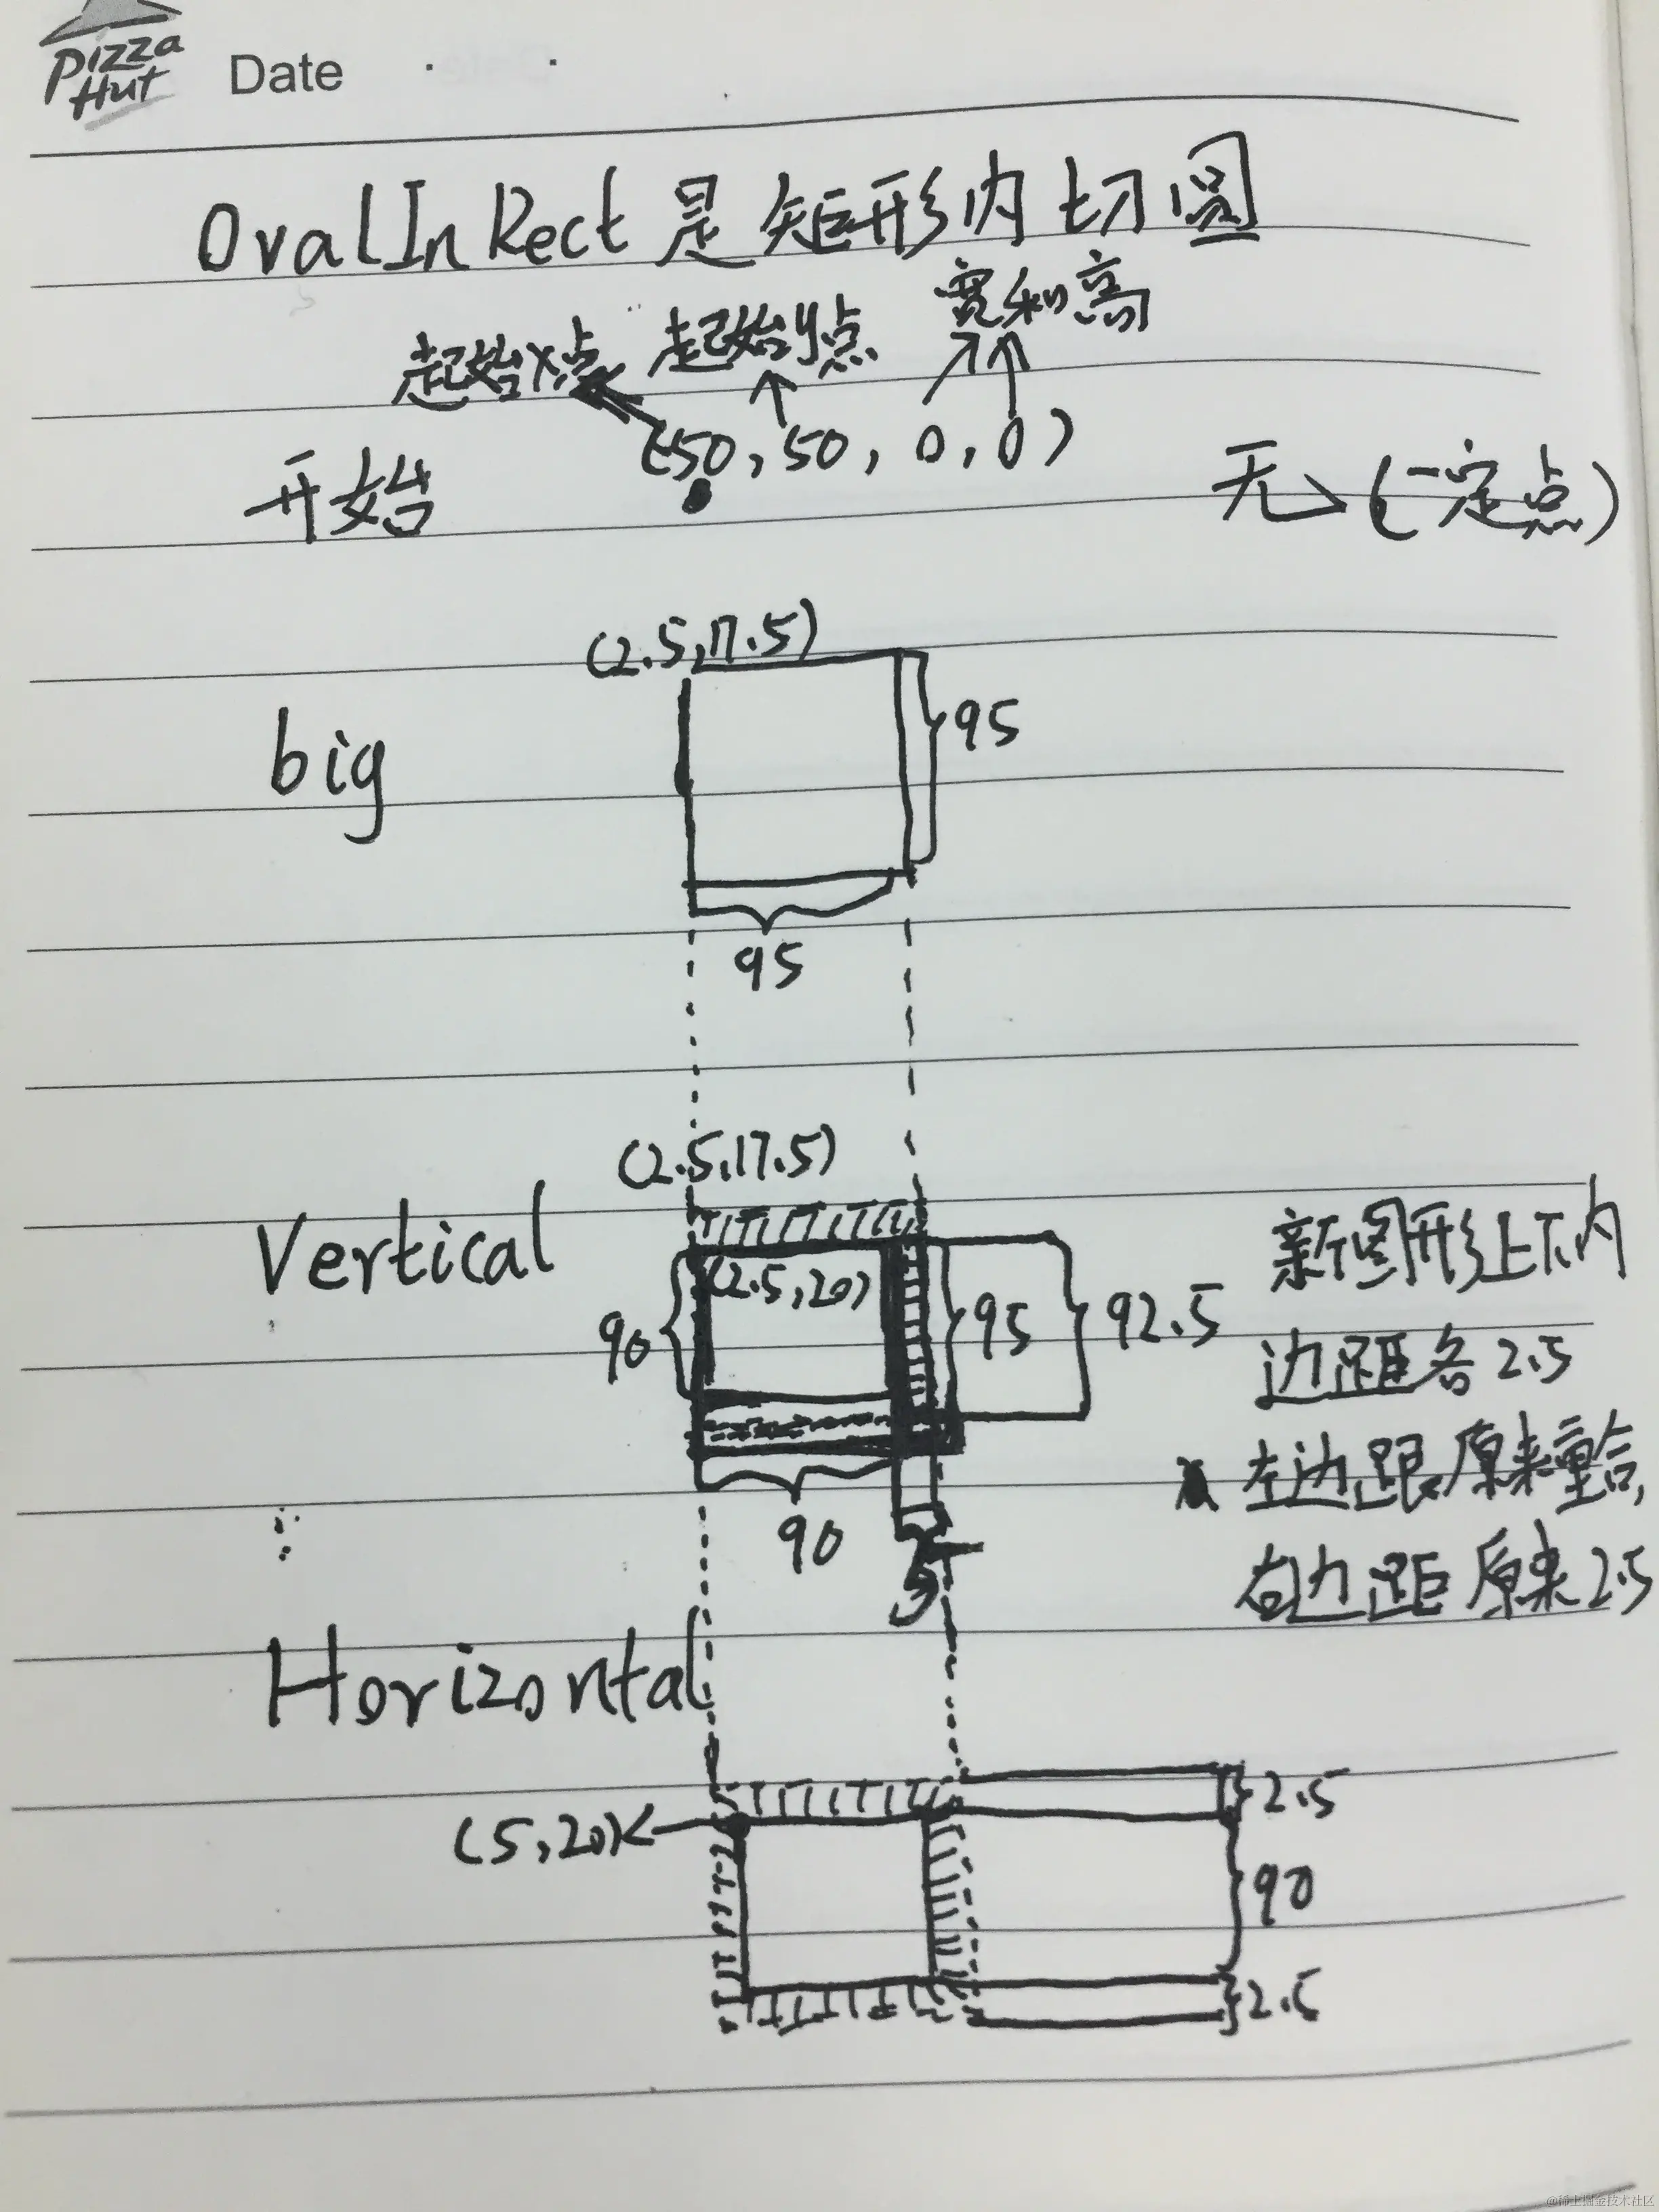 Pizza
Hut
Date
OvalInRect 是矩形内切圆
起始x点 起始y点 宽和高
(50, 50, 0, 0)
开始
无->(一定点)
(2.5,17.5)
big
95
95
(2.5,17.5)
Vertical
(2.5,20)
90
95
92.5
90
5
新图形上下内
边距各2.5
左边跟原来重合,
右边距原来2.5
Horizontal
2.5
(5,20)
90
2.5
@稀土掘金技术社区